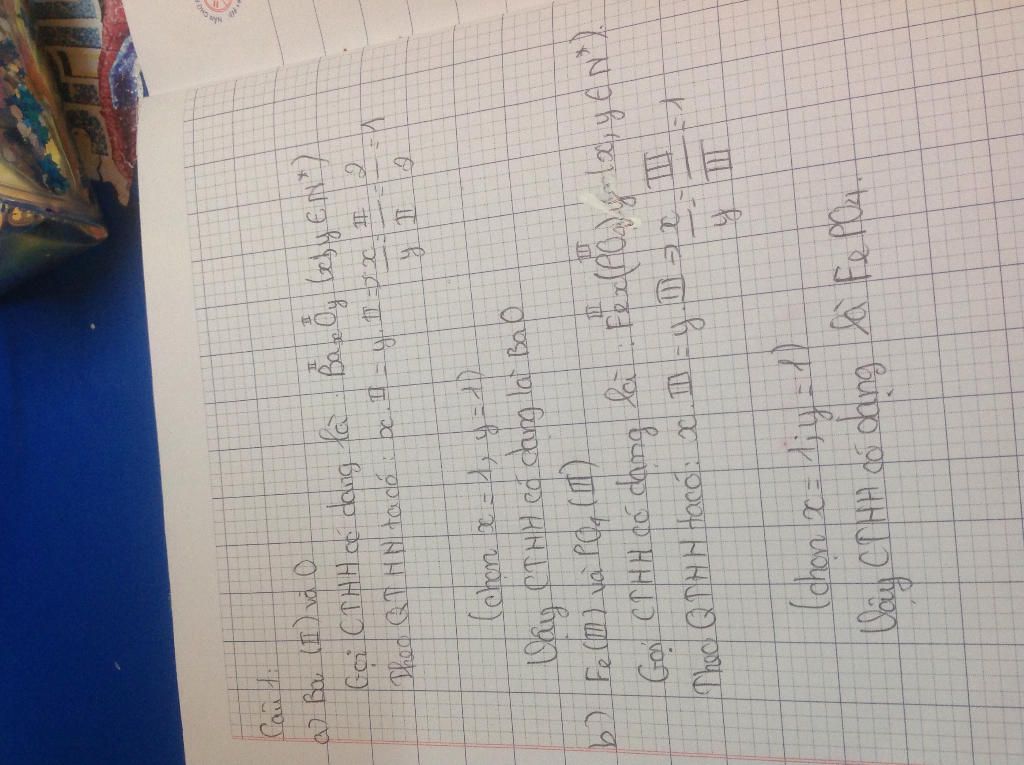 Câu 1:
a) Ba (II) và O
Gọi CTHH có dạng là: Ba<sub>x</sub>O<sub>y</sub> (x,y ∈ N*)
II II
Theo QTHH ta có: x.II = y.II => x/y = II/II = 2/2 = 1
(chọn x = 1, y = 1)
Vậy CTHH có dạng là BaO
b) Fe(III) và PO4 (III)
Gọi CTHH có dạng là: Fex(PO4)y (x, y ∈ N*).
III III
Theo QTHH ta có: x.III = y.III => x/y = III/III = 1
(chọn x = 1; y = 1)
Vậy CTHH có dạng là FePO4.